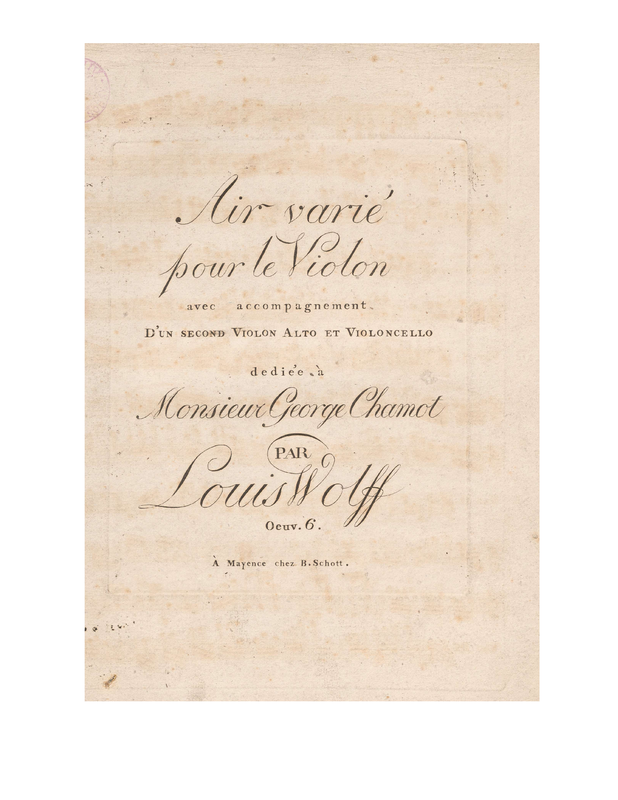 Air varié
pour le Violon
avec accompagnement
D'UN SECOND VIOLON ALTO ET VIOLONCELLO
dediée à
Monsieur George Chamot
PAR
Louis Wolff
Oeuv. 6.
À Mayence chez B. Schott.